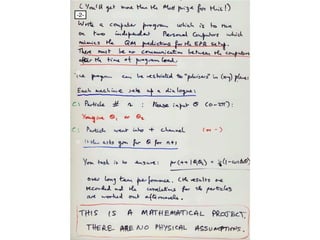 (You'd get more than the Nobel prize for this!)
-2-
Write a computer program which is to run
on two independent Personal Computers which
mimics the QM predictions for the EPR setup.
There must be no communication between the computers
after the time of program load.
The program can be restricted to "polarisers" in (xy) plane:
Each machine sets up a dialogue:
C: Particle # n : Please input θ (0-2π):
You give θ₁ or θ₂
C: Particle went into + channel (or -)
It then asks you for θ for n+1
Your task is to ensure: pr(++|θ₁θ₂) =
over long term performance. (The results are
recorded and the correlations for the particles
are worked out afterwards.
THIS IS A MATHEMATICAL PROJECT.
THERE ARE NO PHYSICAL ASSUMPTIONS.